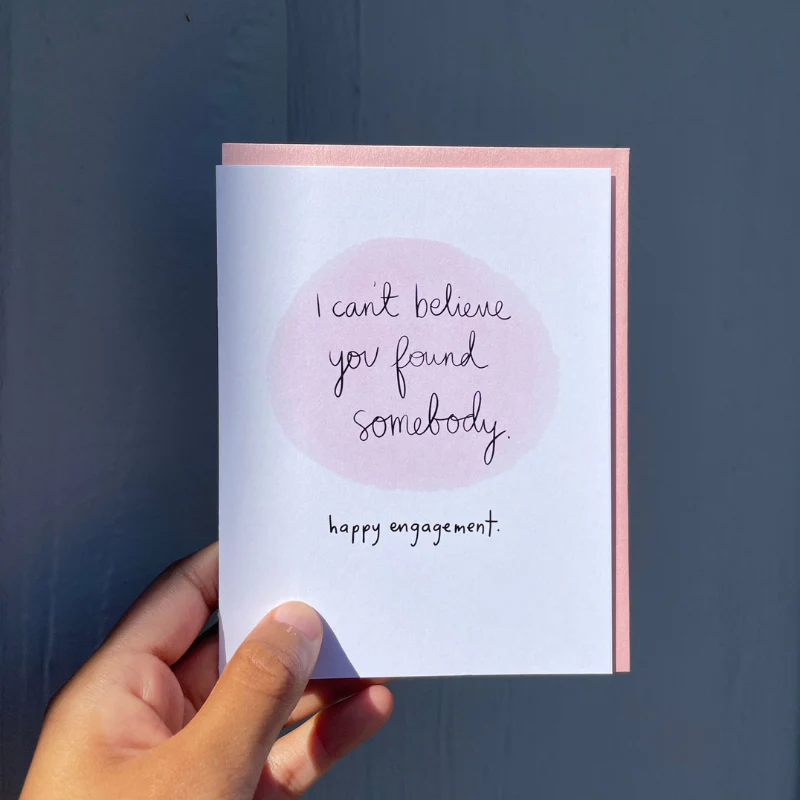 I can't believe
you found
somebody.
happy engagement.